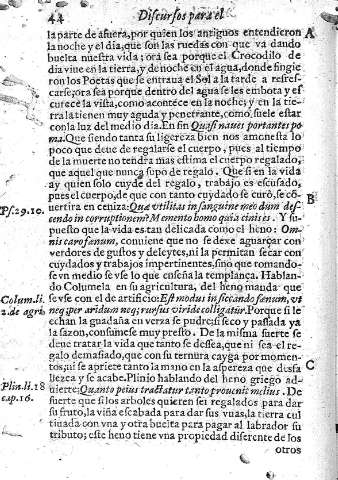 44 Discursos para el
la parte de afuera, por quien los antiguos entendieron A
la noche y el dia, que son las ruedas con que va dando
buelta nuestra vida; ora sea porque el Crocodilo de
dia viue en la tierra, y de noche en el agua, donde fingie
ron los Poetas que se entraua el Sol a la tarde a refres-
carse; ora sea porque dentro del agua se les embota y es
curece la vista, como acontece en la noche; y en la tie-
rra la tienen muy aguda y penetrante, como suele estar
con la luz del medio dia. En fin Quasi naues portantes po
ma. Que siendo tanta su ligereza bien nos amonesta lo
poco que deue de regalarse el cuerpo, pues al tiempo
de la muerte no tendra mas estima el cuerpo regalado,
que aquel que nunca supo de regalo. Que si en la vida
ay quien solo cuyde del regalo, trabajo es escusado,
pues el cuerpo, de que con tanto cuydado se curò, se cō B
uertira en ceniza: Quæ vtilitas in sanguine meo dum des-
Ps. 29. 10. cendo in corruptionem? Memento homo quia cinis es. Y su-
puesto que la vida es tan delicada como el heno: Om
nis caro fænum, conuiene que no se dexe aguarçar con
verdores de gustos y deleytes, ni la permitan secar con
cuydados y trabajos impertinentes, sino que tomando-
se vn medio se vse lo que enseña la templança. Hablan-
do Columela en su agricultura, del heno manda que
Colum. li. se vse con el de artificio: Est modus in siccando fænum, vt
2. de agri. neq; per aridum neq; rursus viride colligatur. Porque si le
echan la guadaña en verça se pudre; si seco y passada ya
la sazon, consumese muy presto. De la misma suerte se
deue tratar la vida que tanto se dessea, que ni sea el re-
galo demasiado, que con su ternura cayga por momen- C
tos, ni se apriete tanto la mano en la aspereza que desfa
llezca y se acabe. Plinio hablando del heno griego ad-
Plin. li. 18 uierte; Quanto peius tractatur tanto prouenit melius. De
cap. 16. suerte que si los arboles quieren ser regalados para dar
su fruto, la viña escabada para dar sus vuas, la tierra cul
tiuada con vna y otra buelta para pagar al labrador su
tributo; este heno tiene vna propiedad diferente de los
otros